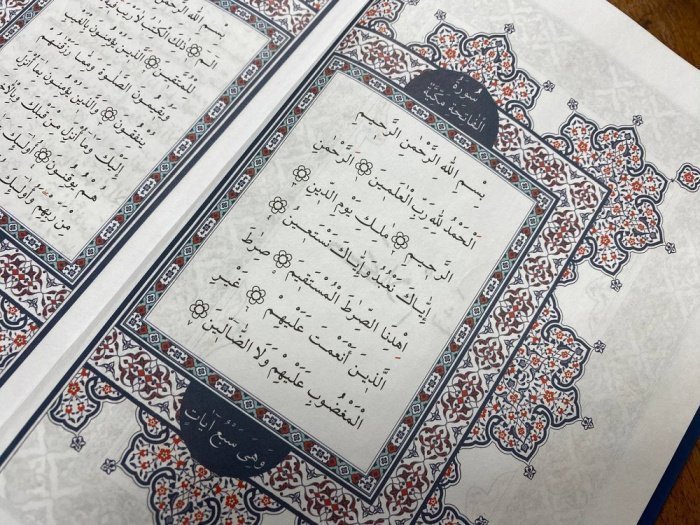 سُورَةُ
الْفَاتِحَةِ مَكِّيَّةٌ
بِسْمِ اللهِ الرَّحْمٰنِ الرَّحِيمِ
اَلْحَمْدُ لِلّٰهِ رَبِّ الْعٰلَمِينَ ١ الرَّحْمٰنِ
الرَّحِيمِ ٢ مٰلِكِ يَوْمِ الدِّينِ ٣
إِيَّاكَ نَعْبُدُ وَإِيَّاكَ نَسْتَعِينُ ٤
اِهْدِنَا الصِّرَاطَ الْمُسْتَقِيمَ ٥ صِرَاطَ
الَّذِينَ أَنْعَمْتَ عَلَيْهِمْ ٦ غَيْرِ
الْمَغْضُوبِ عَلَيْهِمْ وَلَا الضَّالِّينَ ٧
وَهِيَ سَبْعُ اٰيَاتٍ
بِسْمِ اللهِ الرَّحْمٰنِ
الٓمٓ ذٰلِكَ الْكِتٰبُ لَا رَيْبَ
لِلْمُتَّقِينَ الَّذِينَ يُؤْمِنُونَ بِالْغَيْبِ
وَيُقِيمُونَ الصَّلٰوةَ وَمِمَّا رَزَقْنٰهُمْ
يُنْفِقُونَ وَالَّذِينَ يُؤْمِنُونَ بِمَا أُنْزِلَ
إِلَيْكَ وَمَا أُنْزِلَ مِنْ قَبْلِكَ
هُمْ يُوقِنُونَ أُولٰئِكَ
مِنْ رَبِّهِمْ وَأُولٰئِكَ